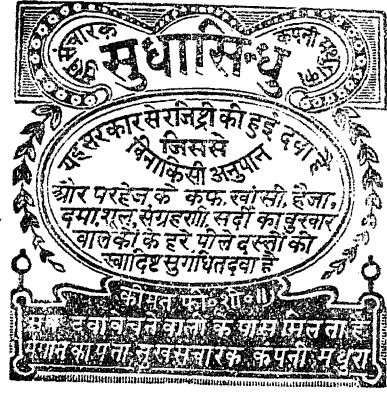 सुख संचारक कंपनी मथुरा का
सुधासिन्धु
यह सरकार से रजिस्ट्री की हुई दवा है
जिससे
बिना किसी अनुपान
और परहेज, के कफ, खांसी, हैजा,
दमा, शूल, संग्रहणी, सर्दी का बुखार
बालकों के हरे, पीले दस्तों की
स्वादिष्ट सुगंधित दवा है
कीमत फी॰ शी॰ ॥)
सब दवा बेचने वालों के पास मिलता है
मंगाने का पता सुख संचारक कंपनी मथुरा